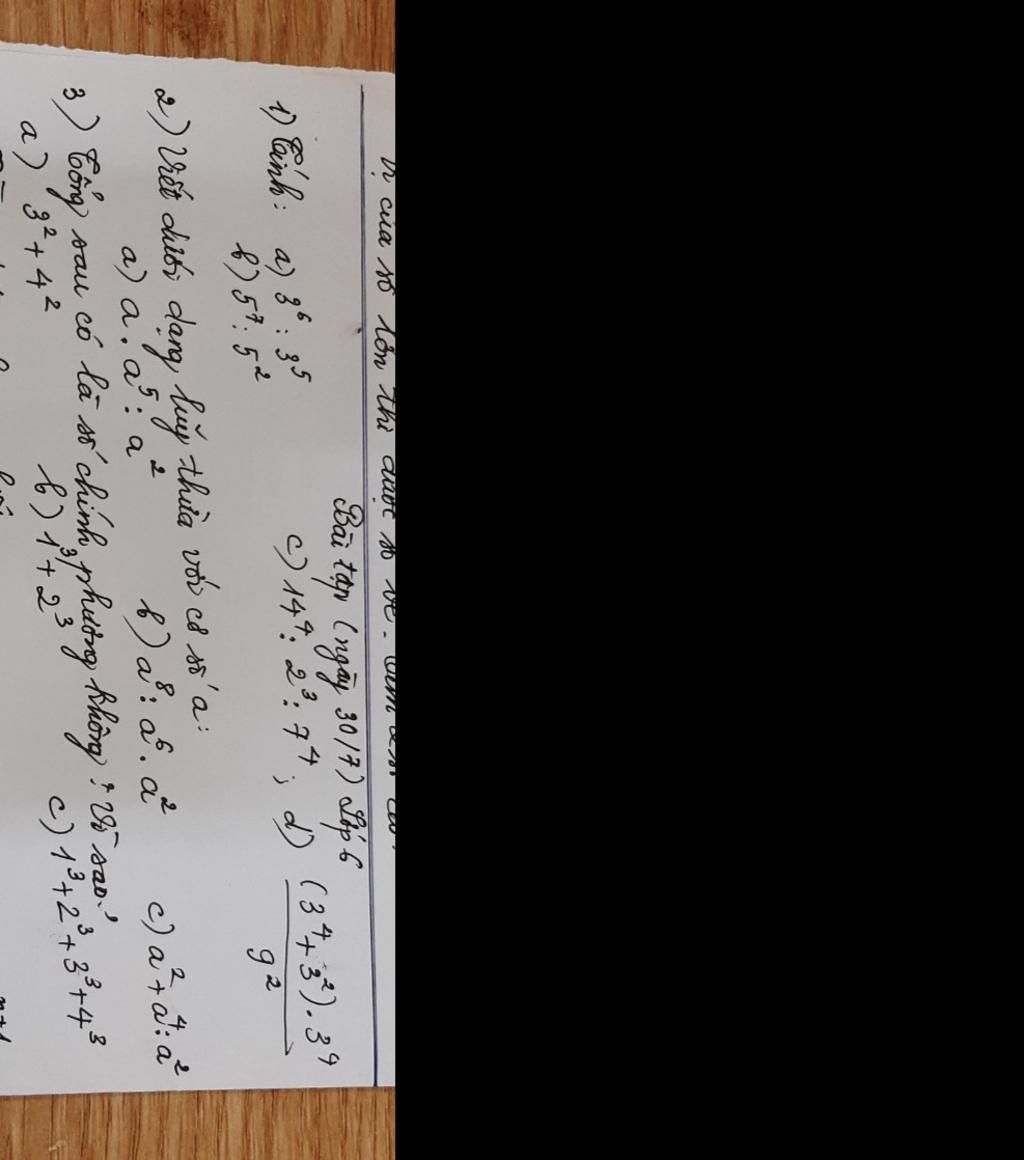 của số lớn thì được số bé.
Bài tập (ngày 30/7) Lớp 6
1) Tính: a) 3⁶ : 3⁵ c) 14⁴ : 2³ : 7⁴ ; d) (3⁴ + 3²) . 3⁴
b) 5⁷ : 5² 9²
2) Viết dưới dạng luỹ thừa với cơ số a:
a) a . a⁵ : a² b) a⁸ : a⁶ . a² c) a² + a⁴ : a²
3) Tổng sau có là số chính phương không? Vì sao?
a) 3² + 4² b) 1³ + 2³ c) 1³ + 2³ + 3³ + 4³
n+1